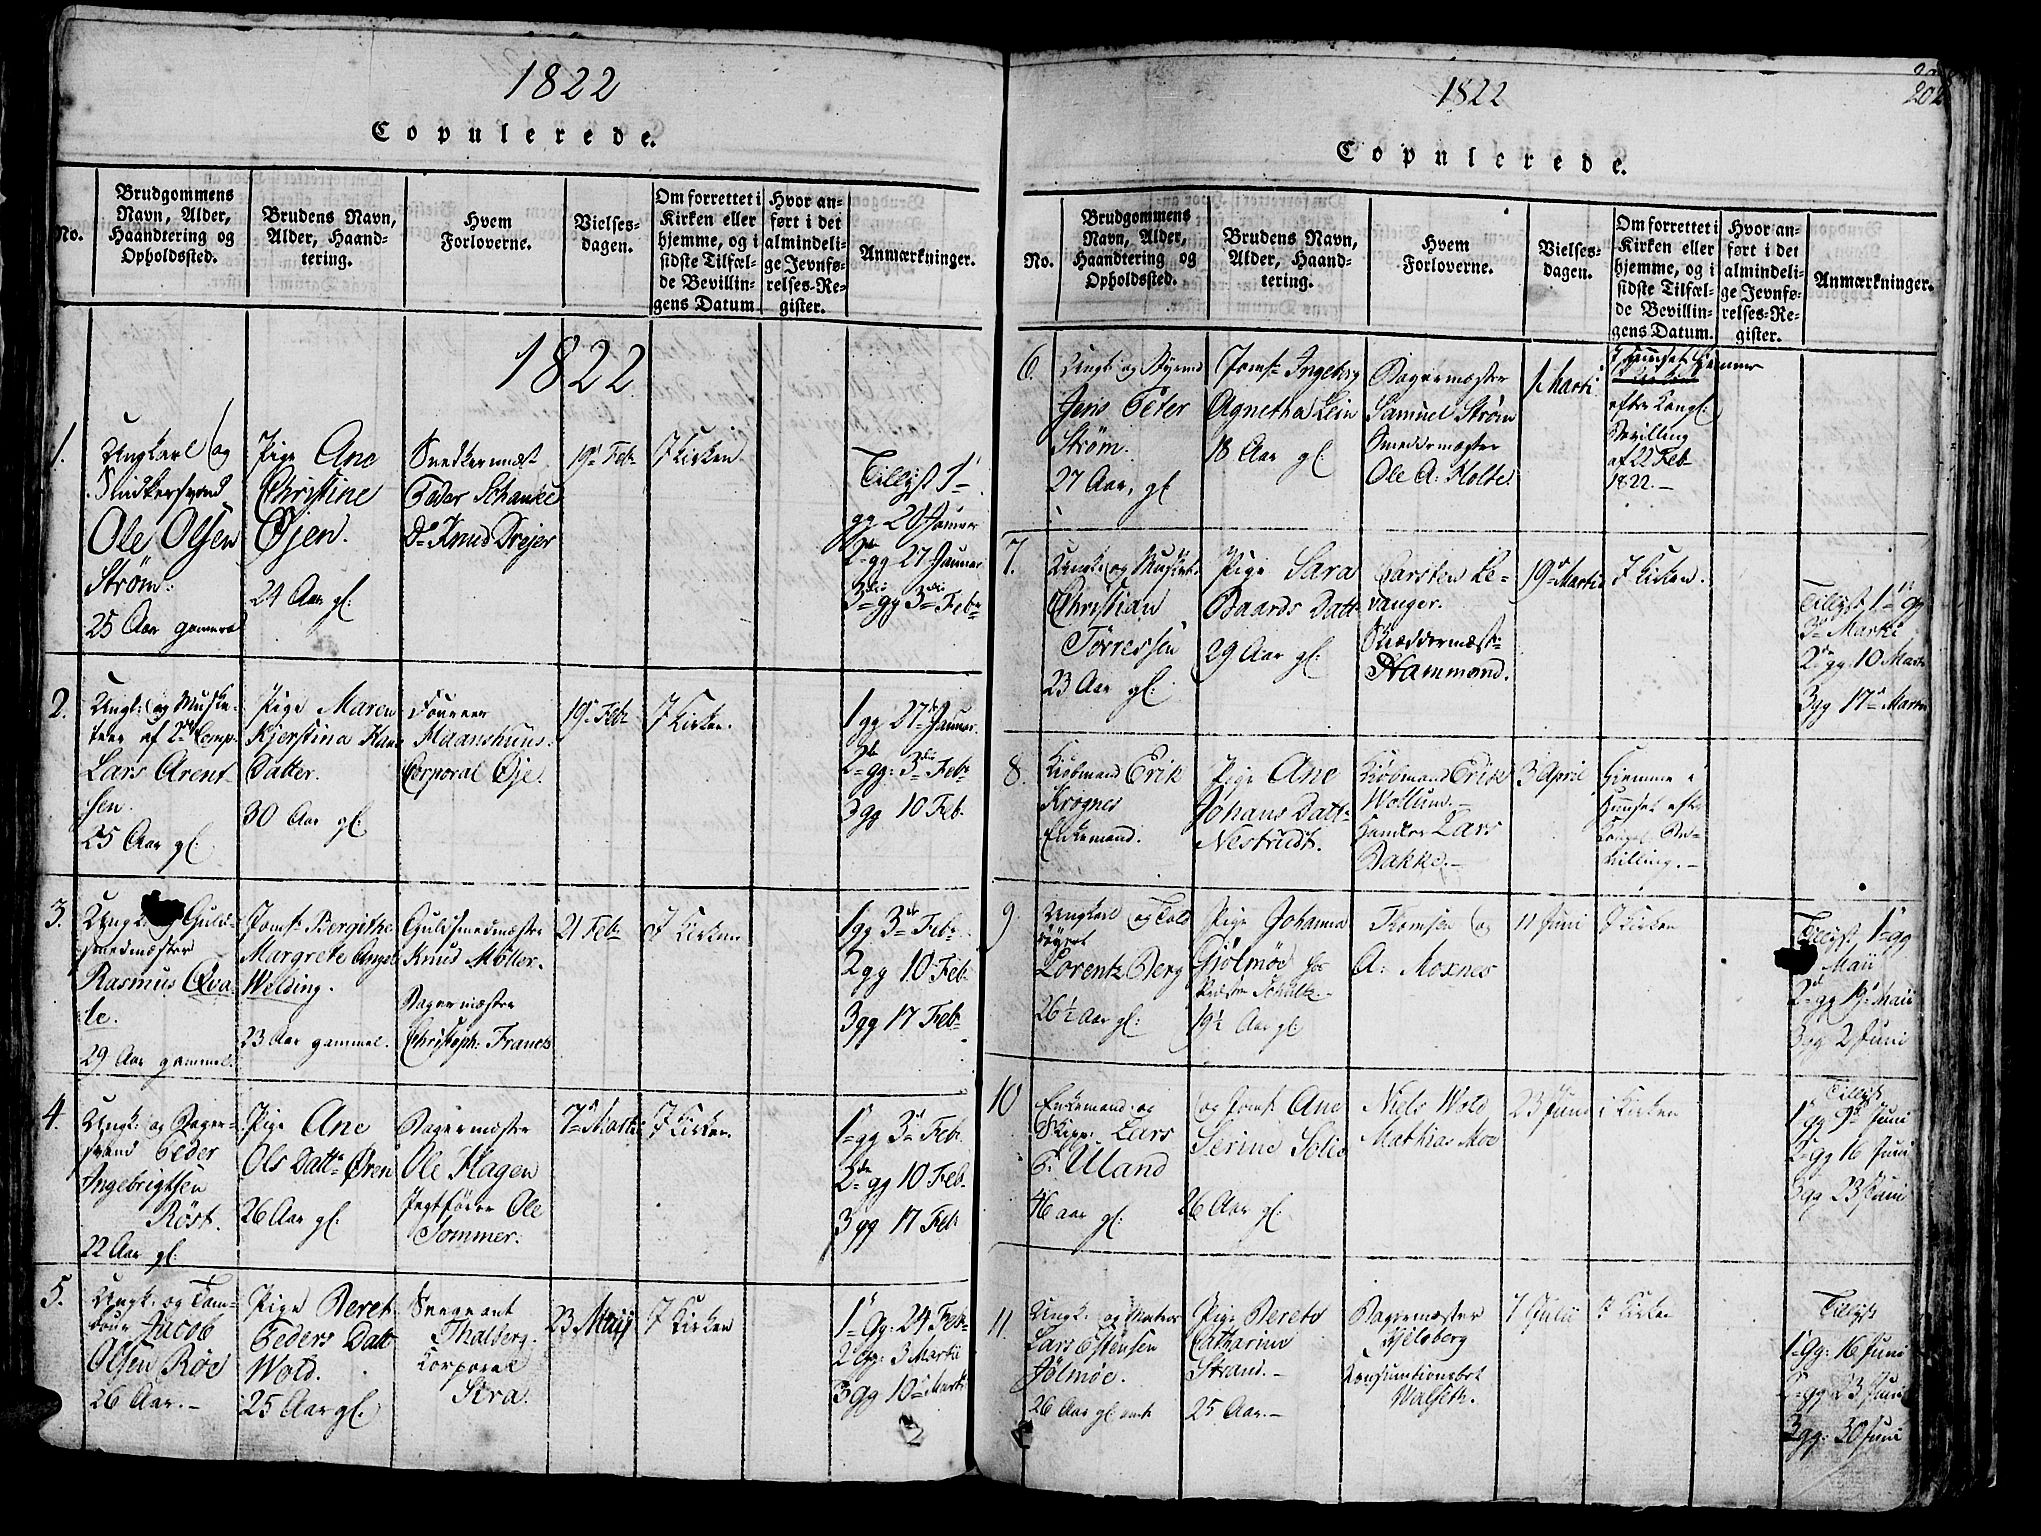 1822
Copulerede.
No.
Brudgommens
Navn, Alder,
Haandtering og
Opholdssted.
Brudens Navn,
Alder, Haand-
tering.
Hvem
Forloverne.
Vielses-
dagen.
Om forrettet i
Kirken eller
hjemme, og i
sidste Tilfæl-
de Bevillin-
gens Datum
Hvor an-
ført i det
almindeli-
ge Jevnfø-
relses-Re-
gister.
Anmærkninger.
1822
1.
Ungkarl og
Snidkersvend
Ole Olsen
Strøm.
25 Aar gammel
Pige Ane
Christine
Øjen.
24 Aar gl.
Snedkermest
Peder Schanke
Do Knud Drejer
19 Feb
I Kirken
Tillyst 1
gg 20 Januar
2 gg 27 Januar
3 gg 3 Feb
2.
Ungk: og Muske-
teer af 2 Comp:
Lars Arent
sen.
25 Aar gl.
Pige Maren
Kjerstina Hans
Datter.
30 Aar gl.
Foureer
Maanshuus.
Corporal Øje.
19 Feb
I Kirken.
1 gg 27 Januar.
2 gg: 3 Feb
3 gg 10 Feb.
3.
Ungk: og Guld-
smedmester
Rasmus Qva-
le.
29 Aar gammel.
Jomf Bergithe
Margrete Angel
Welding.
23 Aar gammel.
Guldsmedmester
Knud Møller.
Bagermester
Christoph: Franck
21 Feb
I Kirken
1 gg 3 Feb
2 gg 10 Feb.
3 gg 17 Feb
4.
Ungk: og Bager-
svend Peder
Ingebrigtsen
Röst.
22 Aar gl.
Pige Ane
Ols Datt Ören
26 Aar gl.
Bagermester
Ole Hagen
Ole
Sommer.
7 Martii
I Kirken.
1 gg 3 Feb.
2 gg 10 Feb.
3 gg 17 Feb
5.
Ungk: og Tam-
bour Jacob
Olsen Röe
26 Aar.
Pige Beret
Peders Datt
Wold.
25 Aar gl.
Sergeant
Thalberg.
Korporal
Stra.
23 Maij
I Kirken
1 Gg: 24 Feb
2 Gg: 3 Martii
3 gg 10 Marti
1822
202
Copulerede.
No.
Brudgommens
Navn, Alder,
Haandtering og
Opholdssted.
Brudens Navn,
Alder, Haand-
tering.
Hvem
Forloverne.
Vielses-
dagen.
Om forrettet i
Kirken eller
hjemme, og i
sidste Tilfæl-
de Bevillin-
gens Datum.
Hvor an-
ført i det
almindeli-
ge Jevnfø-
relses-Re-
gister.
Anmærkninger.
6.
Ungk: og Styrmd
Jens Peter
Strøm.
27 Aar, gl
Jomf Ingeborg
Agnetha Lein
18 Aar gl
Bagermester
Samuel Strøm
Smeddermester
Ole A: Holte.
1 Marti
efter Kongl:
Bevilling
af 22 Feb
1822.
7.
Ungk: og
Christian
Torressen
23 Aar gl:
Pige Sara
Baards Datt
29 Aar gl:
Carsten Le-
vanger.
Skreddermest
Hammond.
19 Martii
I Kirken.
Tillyst 1 gg
3 Martii
2 gg 10 Mart
3 gg 17 Martii
8.
Kiøbmand Erik
Krognes
Enkemand.
Pige Ane
Johans Datt
Nestrudt.
Kiøbmand Erik
Wollum.
Lars
Bakke.
3 April
Hjemme i
Huuset efter
Kongl Be-
villing.
9
Ungkarl og Told
Lorentz Berg
26½ Aar gl:
Pige Johanna
Gjølmøe hos
Schultz.
19½ Aar gl:
Thomsen og
A: Moxnes
11 Juni
I Kirken
Tillyst 1 gg
Maii
2 gg 19 Maii
3 gg 2 Juni
10
Enkemand og
Skipp: Lars
P: Uland
46 aar gl:
og Jomf Ane
Serine Solie
26 Aar gl.
Niels Wold
Mathias Moe
23 Juni
i Kirken
Tillyst
1 gg 9 Juni
2 gg 16 Juni
3 gg 23 Juni
11.
Ungk: og
Lars Estensen
Jølmøe.
26 Aar gl
Pige Berete
Catharine
Strand.
25 Aar.
Bagermester
Hjelsberg
Walseth.
7 Julii
I Kirken
Tillyst
1 Gg: 16 Juni
2 gg 23 Juni
3 gg: 30 Juni